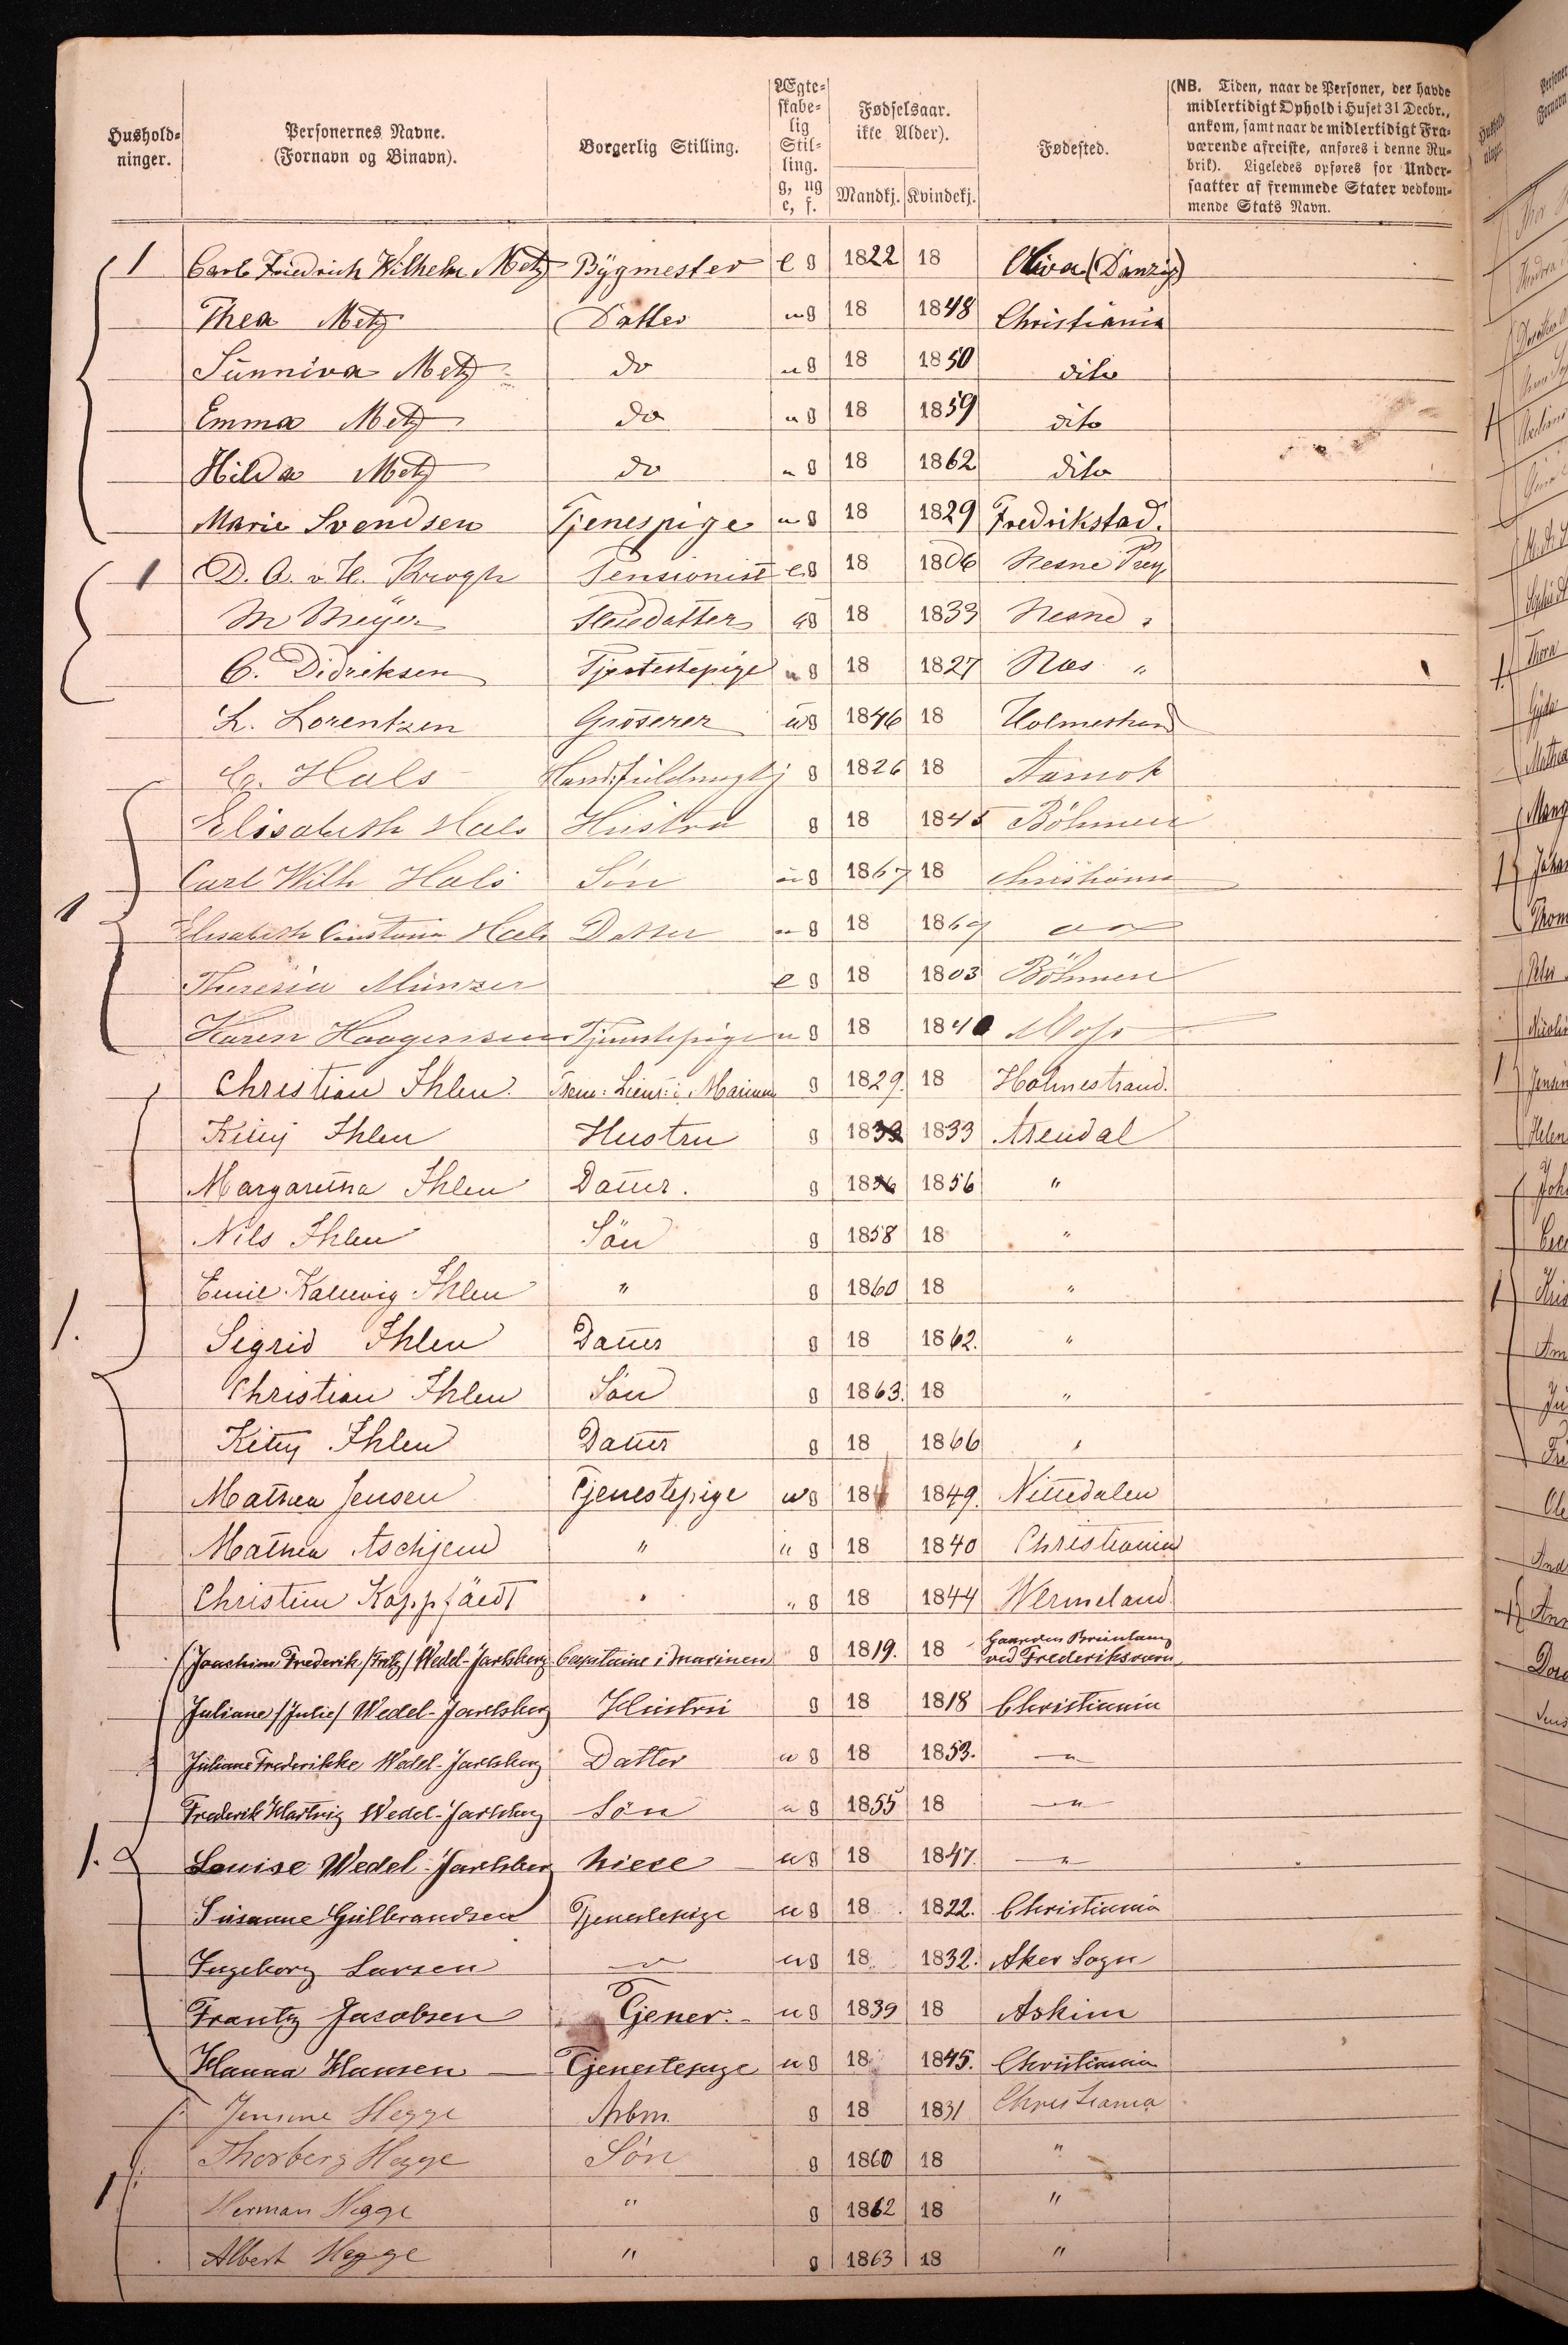 Hushold-
ninger.
Personernes Navne.
(Fornavn og Binavn).
Borgerlig Stilling.
Ægte-
skabe-
lig
Stil-
ling.
g, ug
e, f.
Fødselsaar.
ikke Alder).
Mandkj. Kvindekj.
Fødested.
(NB. Tiden, naar de Personer, der havde
midlertidigt Ophold i Huset 31 Decbr.,
ankom, samt naar de midlertidigt Fra-
værende afreiste, anføres i denne Ru-
brik). Ligeledes opføres for Under-
saatter af fremmede Stater vedkom-
mende Stats Navn.
1 Carl Friedrich Wilhelm Metz Bygmester e g 1822 18 Oliva (Danzig)
Thea Metz Datter u g 18 1848 Christiania
Sunniva Metz do u g 18 1850 dito
Emma Metz do u g 18 1859 dito
Hilda Metz do u g 18 1862 dito
Marie Svendsen Tjenespige u g 18 1829 Fredrikstad.
1 D. A. v. H. Krogh Pensionist e g 18 1806 Nesne
M Meyer Huusdatter g 18 1833 Nesne "
C. Didriksen Tjenestepige u g 18 1827 Næs "
L. Lorentzen Groserer u g 1846 18 Holmestrand
C. Hals g 1826 18
Elisabeth Hals Hustru g 18 1845 Böhmen
Carl Wilh Hals Sön u g 1867 18 Christiania
1 Elisabeth Hals Datter u g 18 1869
Theresia Münzer e g 18 1803 Böhmen
Karen Haagensen Tjenestepige u g 18 1840 Moss
Christian Ihlen Prem: Lieut: i Marinen g 1829. 18 Holmestrand.
Kitty Ihlen Hustru g 18 1833 Arendal
Margaretha Ihlen Datter. g 18 1856 "
Nils Ihlen Sön g 1858 18 "
Emil Kallevig Ihlen " g 1860 18 "
1. Sigrid Ihlen Datter g 18 1862. "
Christian Ihlen Sön g 1863. 18 "
Kitty Ihlen Datter g 18 1866 "
Mathea Jensen Tjenestepige u g 18 1849. Nittedalen
Mathea Aschjem " " g 18 1840 Christiania
Christine " " g 18 1844 Wermeland
Joachim Frederik /Fritz/ Wedel-Jarlsberg Capitaine i Marinen g 1819. 18 Gaarden
ved Frederiksværn
Juliane /Julie/ Wedel-Jarlsberg Hustru g 18 1818 Christiania
Juliane Frederikke Wedel-Jarlsberg Datter u g 18 1853. — " —
Frederik Hartvig Wedel-Jarlsberg Sön u g 1855 18 — " —
1. Louise Wedel-Jarlsberg Niece u g 18 1847. — " —
Susanne Gulbrandsen Tjenestepige u g 18 1822. Christiania
Ingeborg Larsen — " — u g 18 1832. Aker Sogn
Frantz Jacobsen Tjener. u g 1839 18 Askim
Hanna Hansen Tjenestepige u g 18 1845. Christiania
Jensine Hegge Arbm. g 18 1831 Christiania
Thorberg Hegge Sön g 1860 18 "
1 Herman Hegge " g 1862 18 "
Albert Hegge " g 1863 18 "